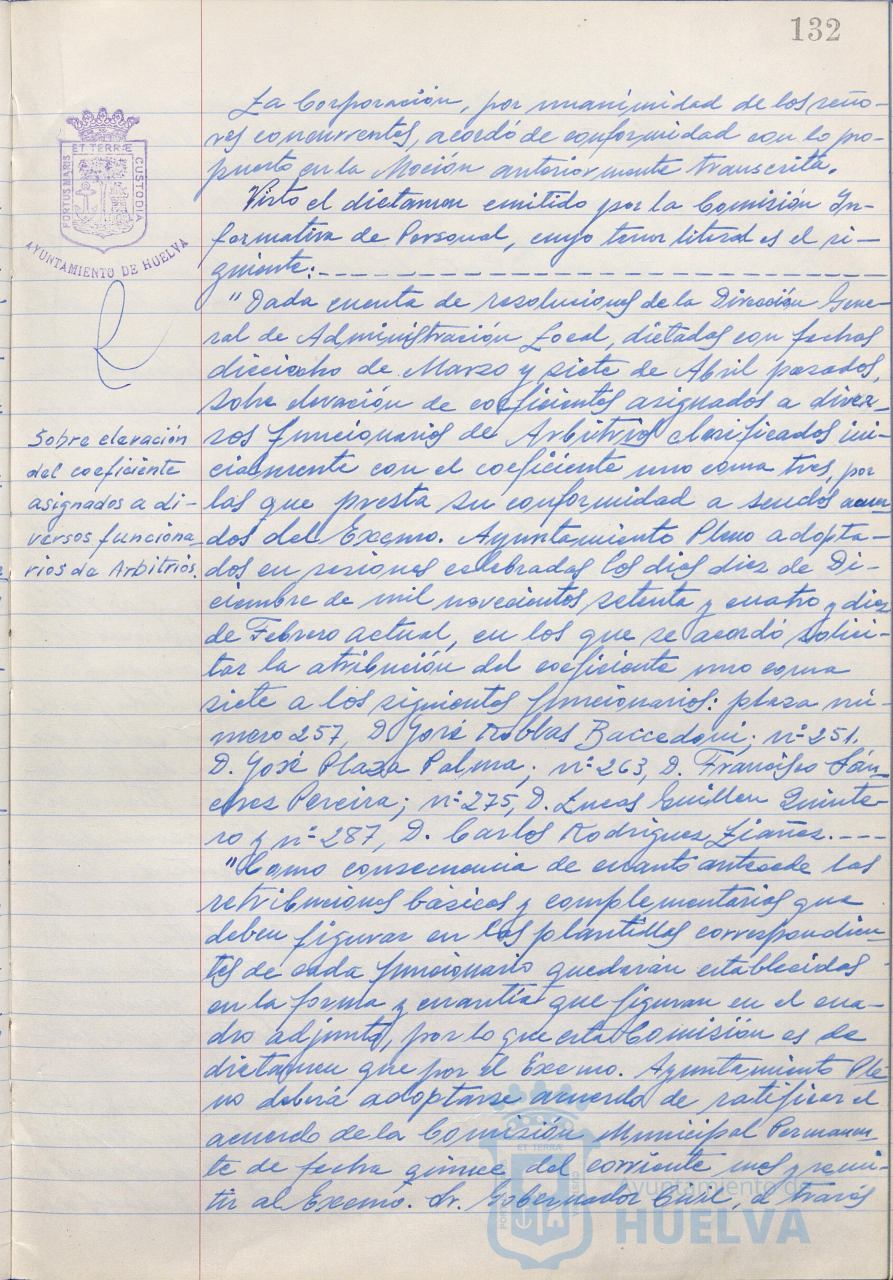 132
La Corporación, por unanimidad de los seño-
res concurrentes, acordó de conformidad con lo pro-
puesto en la Moción anteriormente transcrita.
Visto el dictamen emitido por la Comisión In-
formativa de Personal, cuyo tenor literal es el si-
guiente:
"Dada cuenta de resoluciones de la Dirección Gene-
ral de Administración Local, dictadas con fechas
dieciocho de Marzo y siete de Abril pasados,
sobre elevación de coeficientes asignados a diver-
sos funcionarios de Arbitrios clasificados ini-
cialmente con el coeficiente uno coma tres, por
las que presta su conformidad a sendos acuer
dos del Excmo. Ayuntamiento Pleno adopta-
dos en sesiones celebradas los días diez de Di-
ciembre de mil novecientos setenta y cuatro y diez
de Febrero actual, en los que se acordó solici-
tar la atribución del coeficiente uno coma
siete a los siguientes funcionarios: plaza nú-
mero 257 D. José Roblas Baccedoni; nº 251.
D. José Plaza Palma; nº 263, D. Francisco Sán-
chez Pereira; nº 275, D. Lucas Guillen Quinte-
ro y nº 287, D. Carlos Rodríguez Liañez.
"Como consecuencia de cuanto antecede las
retribuciones básicas y complementarias que
deben figurar en las plantillas correspondien-
tes de cada funcionario quedarán establecidas
en la forma y cuantía que figuran en el cua-
dro adjunto, por lo que esta Comisión es de
dictamen que por el Excmo. Ayuntamiento Ple
no deberá adoptarse acuerdo de ratificar el
acuerdo de la Comisión Municipal Permanen
te de fecha quince del corriente mes y remi-
tir al Excmo. Sr. Gobernador Civil, a través
PORTUS MARIS
ET TERRÆ
CUSTODIA
AYUNTAMIENTO DE HUELVA
Sobre elevación
del coeficiente
asignados a di-
versos funciona-
rios de Arbitrios.
Ayuntamiento de
HUELVA